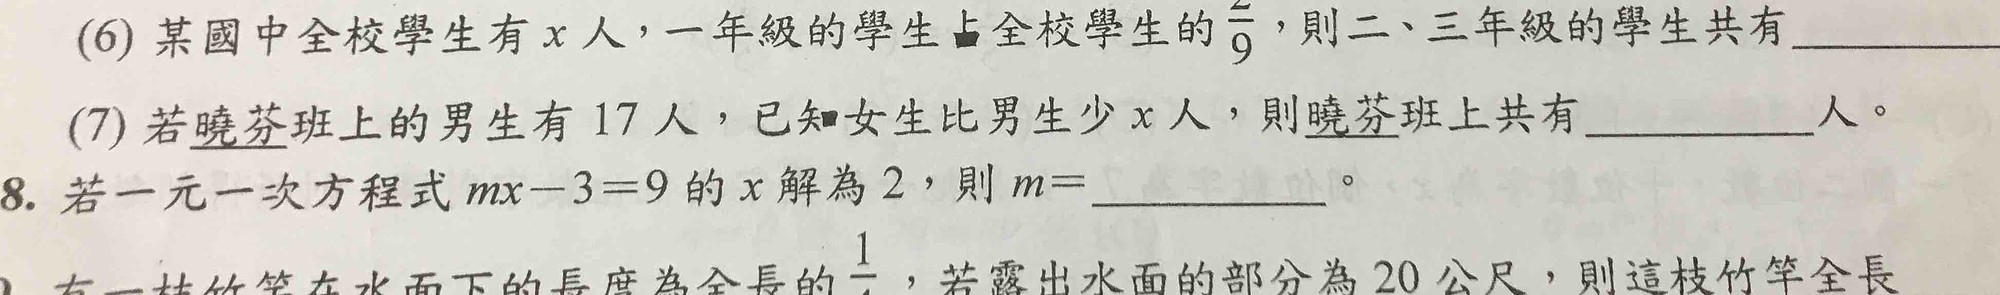 (6) 某國中全校學生有 x 人，一年級的學生占全校學生的 2/9，則二、三年級的學生共有
(7) 若曉芬班上的男生有 17 人，已知女生比男生少 x 人，則曉芬班上共有＿＿＿＿＿人。
8. 若一元一次方程式 mx－3＝9 的 x 解為 2，則 m＝＿＿＿＿＿。
有一枝竹竿在水面下的長度為全長的，若露出水面的部分為 20 公尺，則這枝竹竿全長